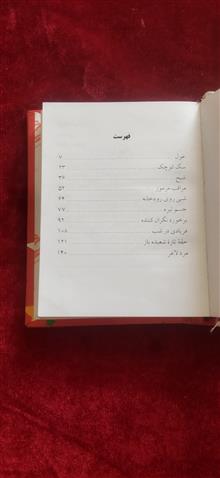 فهرست
غول ۷
سگ کوچک ۲۳
شبح ۳۸
مراقب مرموز ۵۲
شبی روی رودخانه ۶۴
جسم تیره ۷۷
برخورد نگران کننده ۹۲
فریادی در شب ۱۰۸
حقهٔ تازهٔ شعبده باز ۱۲۱
مرد لاغر ۱۴۰